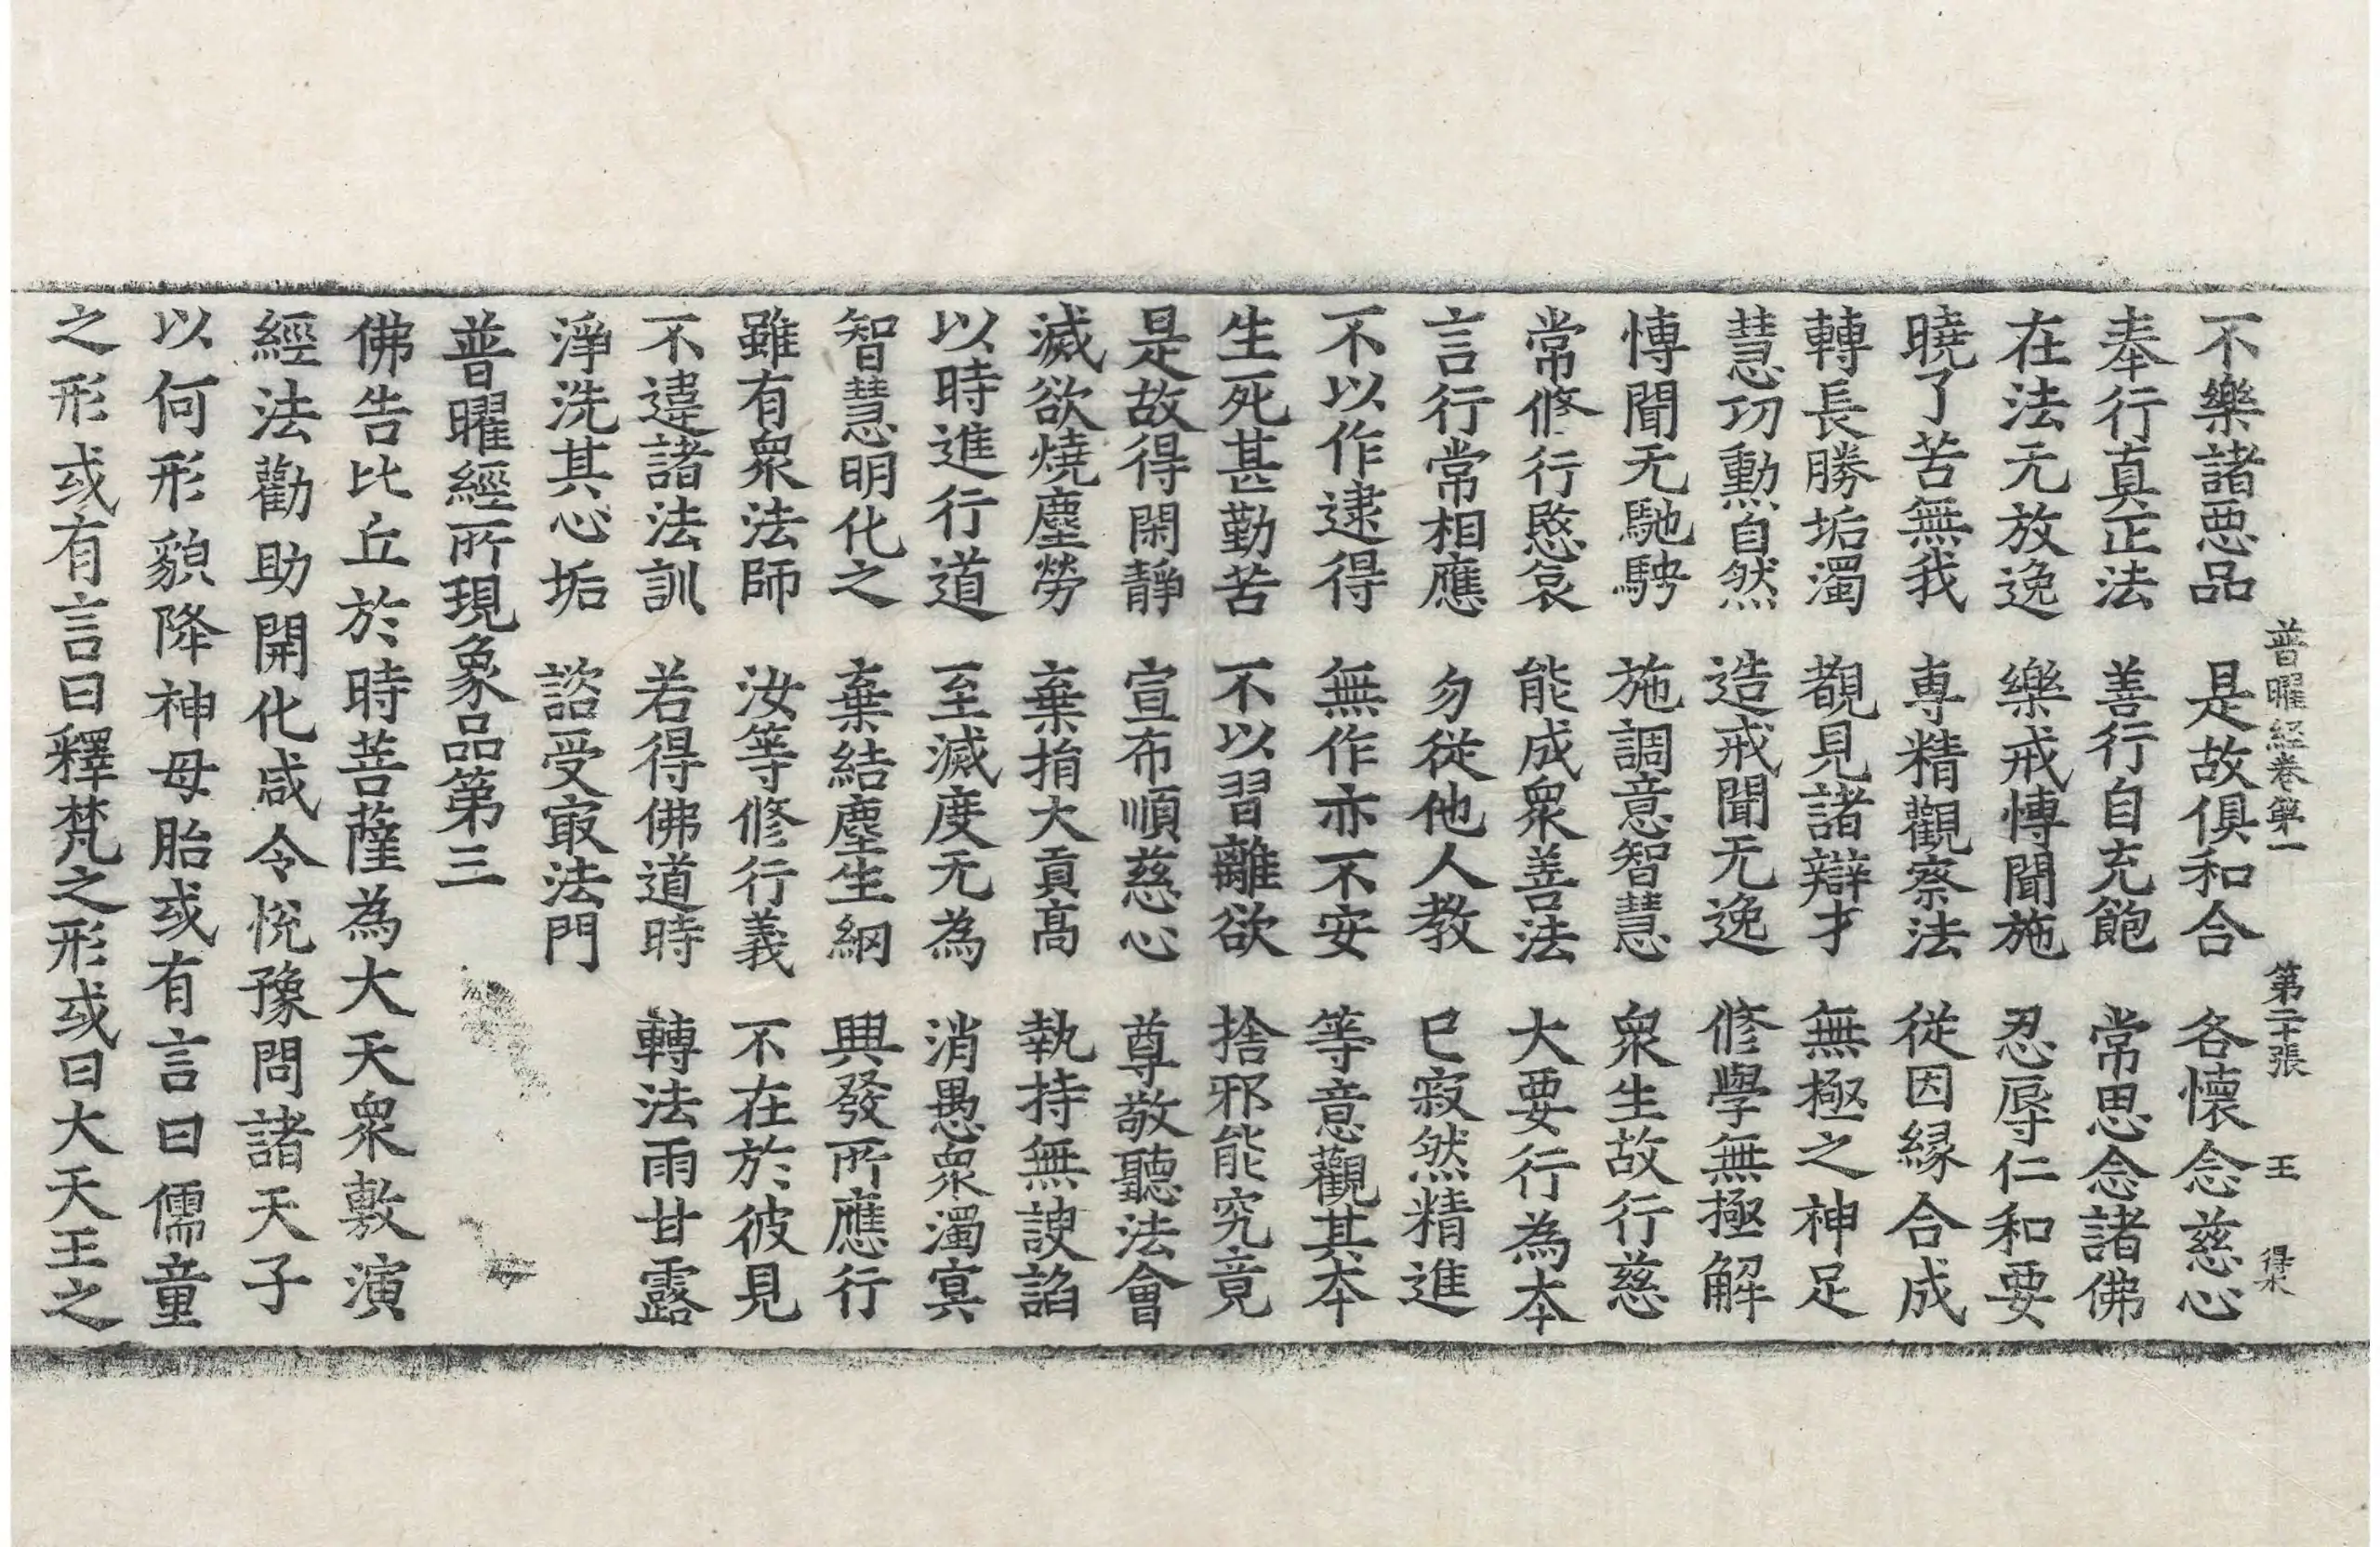 普曜経卷第一 第二十張 王 得林
不樂諸惡品 是故俱和合 各懷念慈心
奉行真正法 善行自充飽 常思念諸佛
在法无放逸 樂戒愽聞施 忍辱仁和要
曉了苦無我 専精觀察法 從因縁合成
轉長勝垢濁 覩見諸辯才 無極之神足
慧㓛勳自然 造戒聞无逸 修學無極解
愽聞无馳騁 施調意智慧 衆生故行慈
常修行愍哀 能成衆善法 大要行為本
言行常相應 勿從他人教 已寂然精進
不以作逮得 無作亦不安 等意觀其本
生死甚勤苦 不以習離欲 捨邪能究竟
是故得閑靜 宣布順慈心 尊敬聽法會
滅欲燒塵勞 棄捐大貢髙 執持無諛諂
以時進行道 至滅度无為 消愚衆濁冥
智慧明化之 棄結塵生網 興發所應行
雖有衆法師 汝等修行義 不在於彼見
不違諸法訓 若得佛道時 轉法雨甘露
淨洗其心垢 諮受㝡法門
普曜經所現象品第三
佛告比丘於時菩薩為大天衆敷演
經法勸助開化咸令悅豫問諸天子
以何形貌降神母胎或有言曰儒童
之形或有言曰釋梵之形或曰大天王之